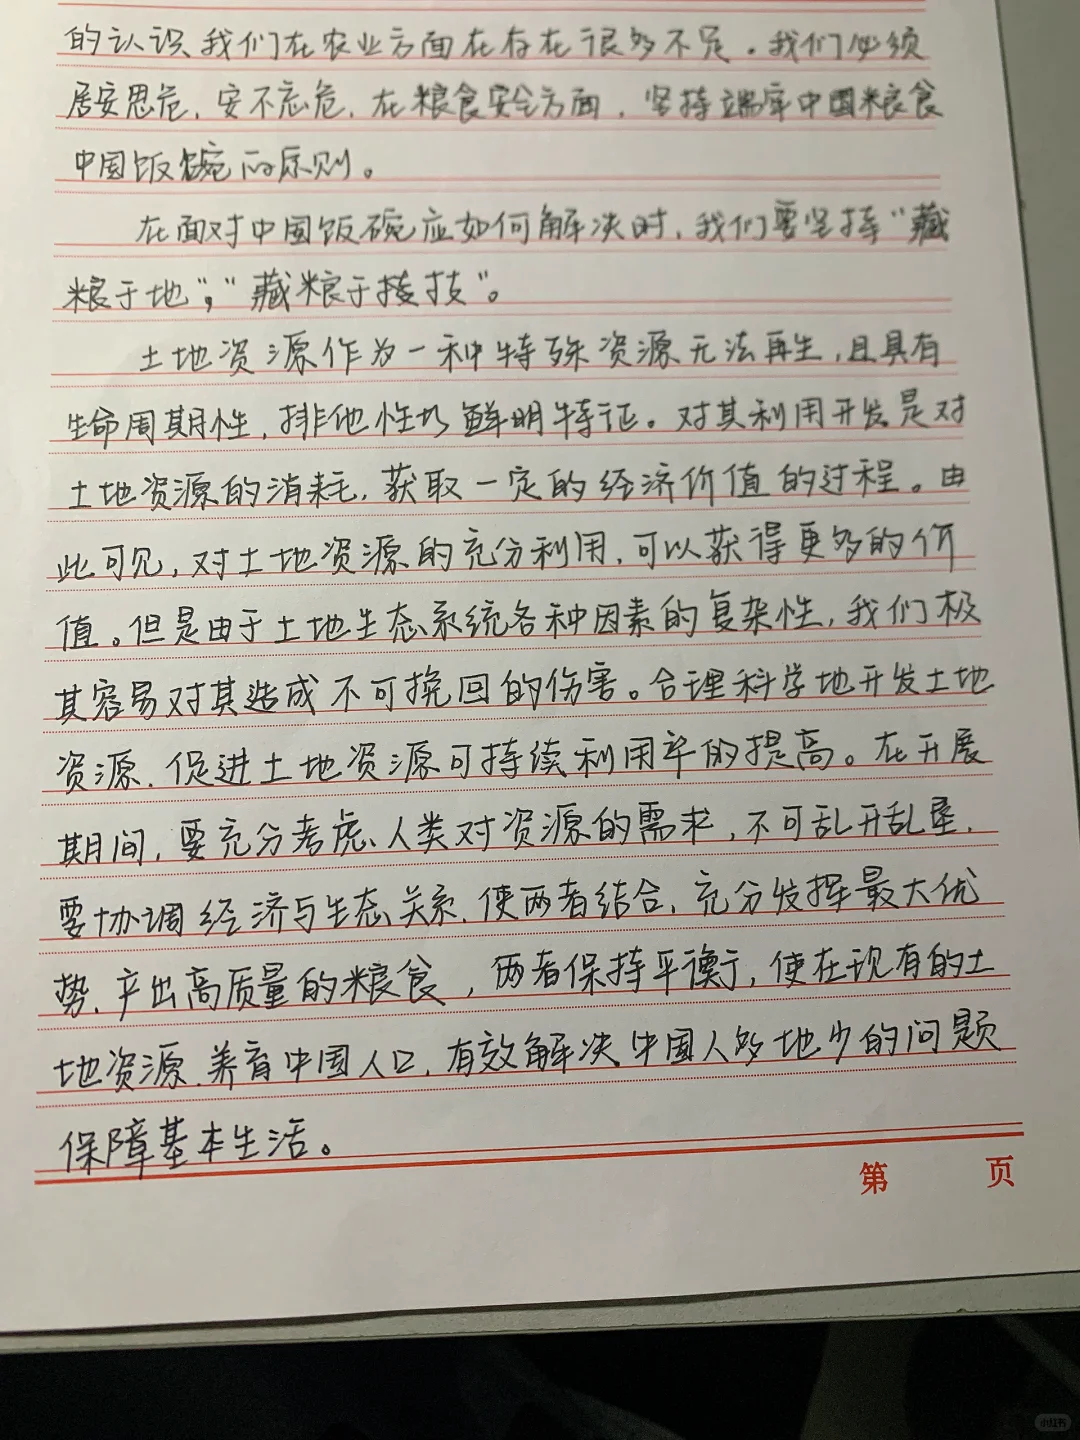 的认识我们在农业方面在存在很多不足。我们必须
居安思危,安不忘危,在粮食安全方面,坚持端牢中国粮食
中国饭碗的原则。
在面对中国饭碗应如何解决时,我们要坚持“藏
粮于地”,“藏粮于技”。
土地资源作为一种特殊资源无法再生,且具有
生命周期性,排他性以鲜明特征。对其利用开发是对
土地资源的消耗,获取一定的经济价值的过程。由
此可见,对土地资源的充分利用,可以获得更多的价
值。但是由于土地生态系统各种因素的复杂性,我们极
其容易对其造成不可挽回的伤害。合理科学地开发土地
资源,促进土地资源可持续利用率的提高。在开展
期间,要充分考虑人类对资源的需求,不可乱开乱垦,
要协调经济与生态关系,使两者结合,充分发挥最大优
势,产出高质量的粮食,两者保持平衡,使在现有的土
地资源,养育中国人口,有效解决中国人多地少的问题
保障基本生活。
第 页
小红书